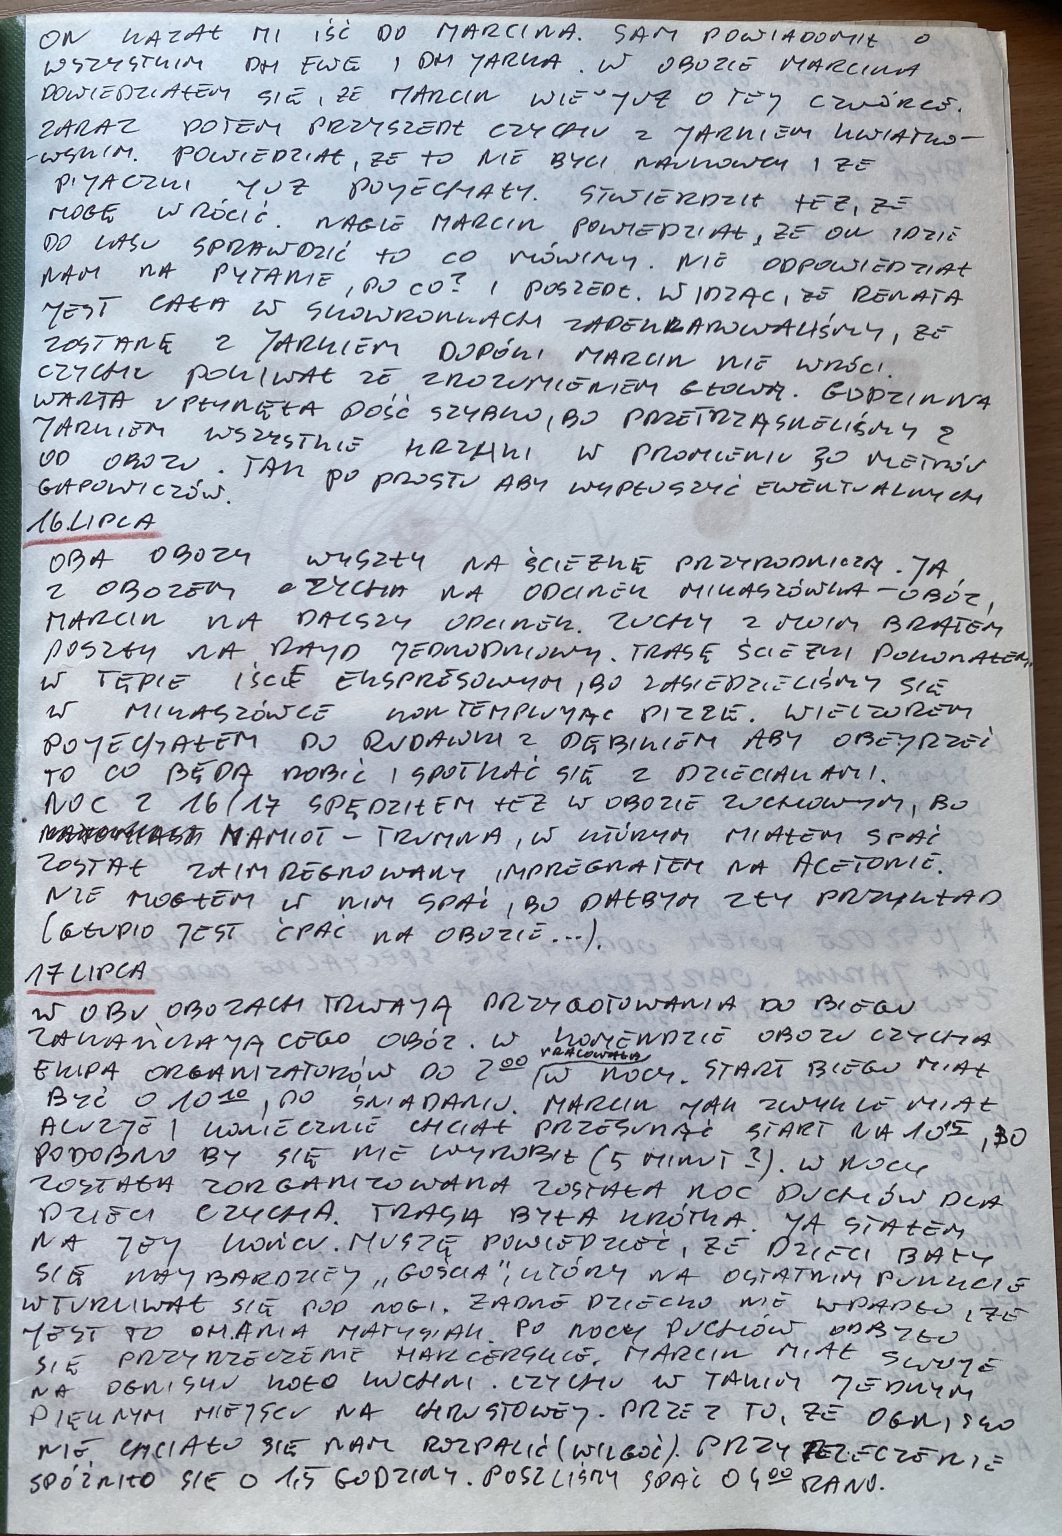 ON KAZAŁ MI IŚĆ DO MARCINA. SAM POWIADOMIŁ O
WSZYSTKIM DH EWĘ I DH JARKA. W OBOZIE MARCINA
DOWIEDZIAŁEM SIĘ, ŻE MARCIN WIE JUŻ O TEJ CZWÓRCE.
ZARAZ POTEM PRZYSZEDŁ CZYCHU Z JARKIEM KWIATKO-
-WSKIM. POWIEDZIAŁ, ŻE TO NIE BYLI NAUKOWCY I ŻE
PIJACZKI JUŻ POJECHAŁY. STWIERDZIŁ TEŻ, ŻE
MOGĘ WRÓCIĆ. NAGLE MARCIN POWIEDZIAŁ, ŻE ON IDZIE
DO LASU SPRAWDZIĆ TO CO MÓWIMY. NIE ODPOWIEDZIAŁ
NAM NA PYTANIE, PO CO? I POSZEDŁ. WIDZĄC, ŻE RENATA
JEST CAŁA W SKOWRONKACH ZADEKLAROWALIŚMY, ŻE
ZOSTANĘ Z JARKIEM DOPÓKI MARCIN NIE WRÓCI.
CZYCHU POKIWAŁ ZE ZROZUMIENIEM GŁOWĄ. GODZINNA
WARTA UPŁYNĘŁA DOŚĆ SZYBKO, BO PRZETRZĄSNELIŚMY Z
JARKIEM WSZYSTKIE KRZAKI W PROMIENIU 30 METRÓW
OD OBOZU. TAK PO PROSTU ABY WYPŁOSZYĆ EWENTUALNYCH
GAPOWICZÓW.
16 LIPCA
OBA OBOZY WYSZŁY NA ŚCIEŻKĘ PRZYRODNICZĄ. JA
Z OBOZEM CZYCHA NA ODCINEK MIKASZÓWKA - OBÓZ,
MARCIN NA DALSZY ODCINEK. ZUCHY Z MOIM BRATEM
POSZŁY NA RAJD JEDNODNIOWY. TRASĘ ŚCIEŻKI POKONAŁEM
W TĘPIE IŚCIE EKSPRESOWYM, BO ZASIEDZIELIŚMY SIĘ
W MIKASZÓWCE KONTEMPLUJĄC PIZZE. WIECZOREM
POJECHAŁEM DO RUDAWKI Z DĘBIKIEM ABY OBEJRZEĆ
TO CO BĘDĄ ROBIĆ I SPOTKAĆ SIĘ Z DZIECIAKAMI.
NOC Z 16/17 SPĘDZIŁEM TEŻ W OBOZIE ZUCHOWYM, BO
NAMIOT - TRUMNA, W KTÓRYM MIAŁEM SPAĆ
ZOSTAŁ ZAIMPREGNOWANY IMPREGNATEM NA ACETONIE.
NIE MOGŁEM W NIM SPAĆ, BO DAŁBYM ZŁY PRZYKŁAD
(GŁUPIO JEST ĆPAĆ NA OBOZIE...).
17 LIPCA
W OBU OBOZACH TRWAJĄ PRZYGOTOWANIA DO BIEGU
ZAKAŃCZAJĄCEGO OBÓZ. W KOMENDZIE OBOZU CZYCHA
EKIPA ORGANIZATORÓW PRACOWAŁA DO 2⁰⁰ W NOCY. START BIEGU MIAŁ
BYĆ O 10¹⁰, PO ŚNIADANIU. MARCIN JAK ZWYKLE MIAŁ
ALUZJE I KONIECZNIE CHCIAŁ PRZESUNĄĆ START NA 10¹⁵, BO
PODOBNO BY SIĘ NIE WYROBIŁ (5 MINUT?). W NOCY
ZOSTAŁA ZORGANIZOWANA ZOSTAŁA NOC DUCHÓW DLA
DZIECI CZYCHA. TRASA BYŁA KRÓTKA. JA STAŁEM
NA JEJ KOŃCU. MUSZĘ POWIEDZIEĆ, ŻE DZIECI BAŁY
SIĘ NAJBARDZIEJ „GOŚCIA", KTÓRY NA OSTATNIM PUNKCIE
WTURLIWAŁ SIĘ POD NOGI. ŻADNE DZIECKO NIE WPADŁO, ŻE
JEST TO DH. ANIA MATYSIAK. PO NOCY DUCHÓW ODBYŁO
SIĘ PRZYRZECZENIE HARCERSKIE. MARCIN MIAŁ SWOJE
NA OGNISKU KOŁO KUCHNI. CZYCHU W TAKIM JEDNYM
PIĘKNYM MIEJSCU NA CHRUSTOWEJ. PRZEZ TO, ŻE OGNISKO
NIE CHCIAŁO SIĘ NAM ROZPALIĆ (WILGOĆ). PRZYRZECZENIE
SPÓŹNIŁO SIĘ O 1,5 GODZINY. POSZLIŚMY SPAĆ O 4⁰⁰ RANO.